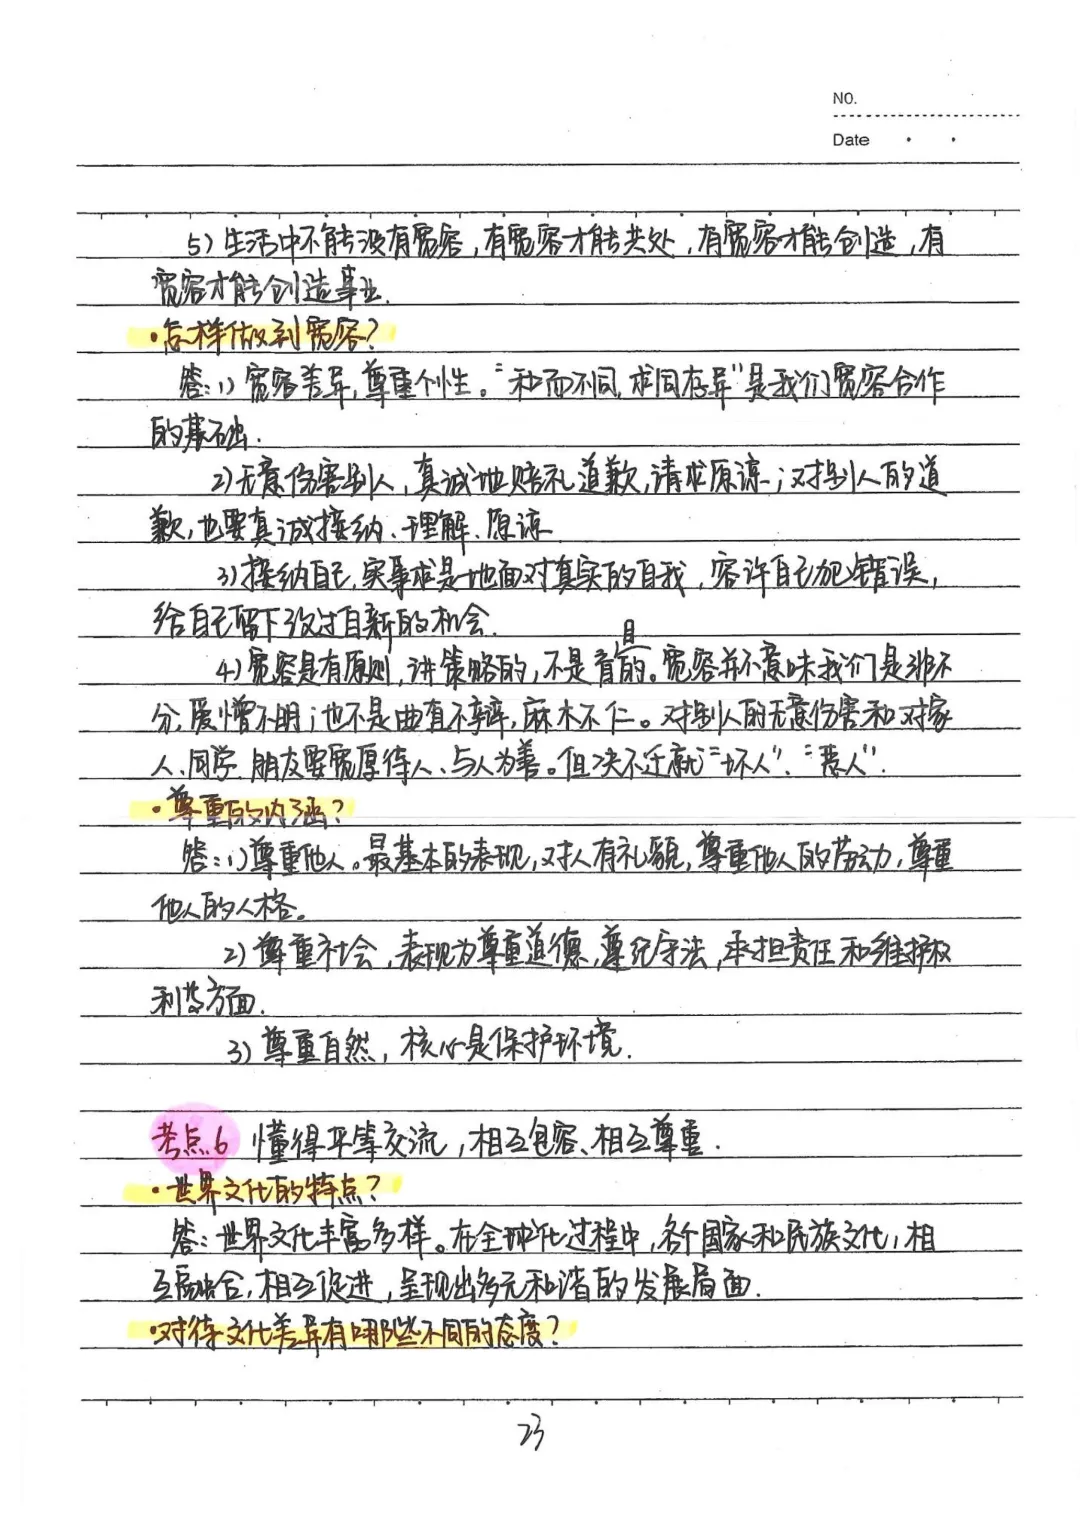 NO.
Date
5) 生活中不能没有宽容,有宽容才能共处,有宽容才能创造,有
宽容才能创造事业.
·怎样做到宽容?
答:1) 宽容差异,尊重个性。"和而不同,求同存异"是我们宽容合作
的基础.
2)无意伤害别人,真诚地赔礼道歉,请求原谅;对别人的道
歉,也要真诚接纳、理解、原谅
3)接纳自己,实事求是地面对真实的自我,容许自己犯错误,
给自己留下改过自新的机会.
4)宽容是有原则,讲策略的,不是盲目的。宽容并不意味我们是非不
分,爱憎不明;也不是曲直不辨,麻木不仁。对别人的无意伤害和对家
人、同学、朋友要宽厚待人、与人为善。但决不迁就"坏人"、"恶人".
·尊重的内涵?
答:1)尊重他人。最基本的表现,对人有礼貌,尊重他人的劳动,尊重
他人的人格。
2) 尊重社会,表现为尊重道德,遵纪守法,承担责任和维护权
利等方面.
3) 尊重自然,核心是保护环境.
考点6 懂得平等交流,相互包容、相互尊重.
·世界文化的特点?
答:世界文化丰富多样。在全球化过程中,各个国家和民族文化,相
互融合,相互促进,呈现出多元和谐的发展局面.
·对待文化差异有哪些不同的态度?
23